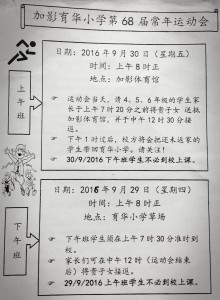 加影育华小学第 68 届常年运动会
上午班
日期：2016 年 9 月 30 日（星期五）
时间：上午 8 时正
地点：加影体育馆
运动会当天，请 4、5、6 年级的学生家
长于上午 7 时 20 分之前将贵子女 送抵
加影体育馆，并于中午 12 时 30 分接
返。
下午 1 时过后，校方将会把还未返家的
学生带回育华小学。请关注！
30/9/2016 下午班学生不必到校上课。
下午班
日期：2016 年 9 月 29 日（星期四）
时间：上午 8 时正
地点：育华小学草场
下午班学生须在上午 7 时 30 分准时到
校。
家长们可在中午 12 时（运动会结束
后）将贵子女接返。
29/9/2016 上午班学生不必到校上课。